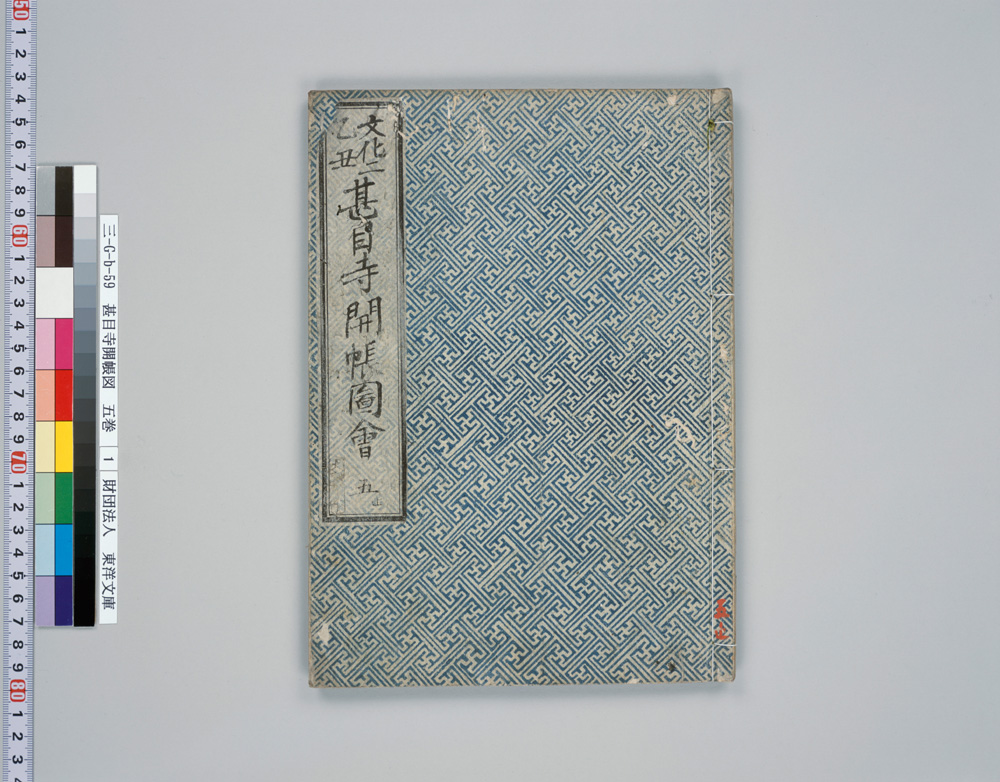 文化二
乙丑
甚目寺開帳圖會 五
三-G-b-59 甚目寺開帳図 五巻 1 財団法人 東洋文庫
50 1 2 3 4 5 6 7 8 9 60 1 2 3 4 5 6 7 8 9 70 1 2 3 4 5 6 7 8 9 80 1 2 3 4